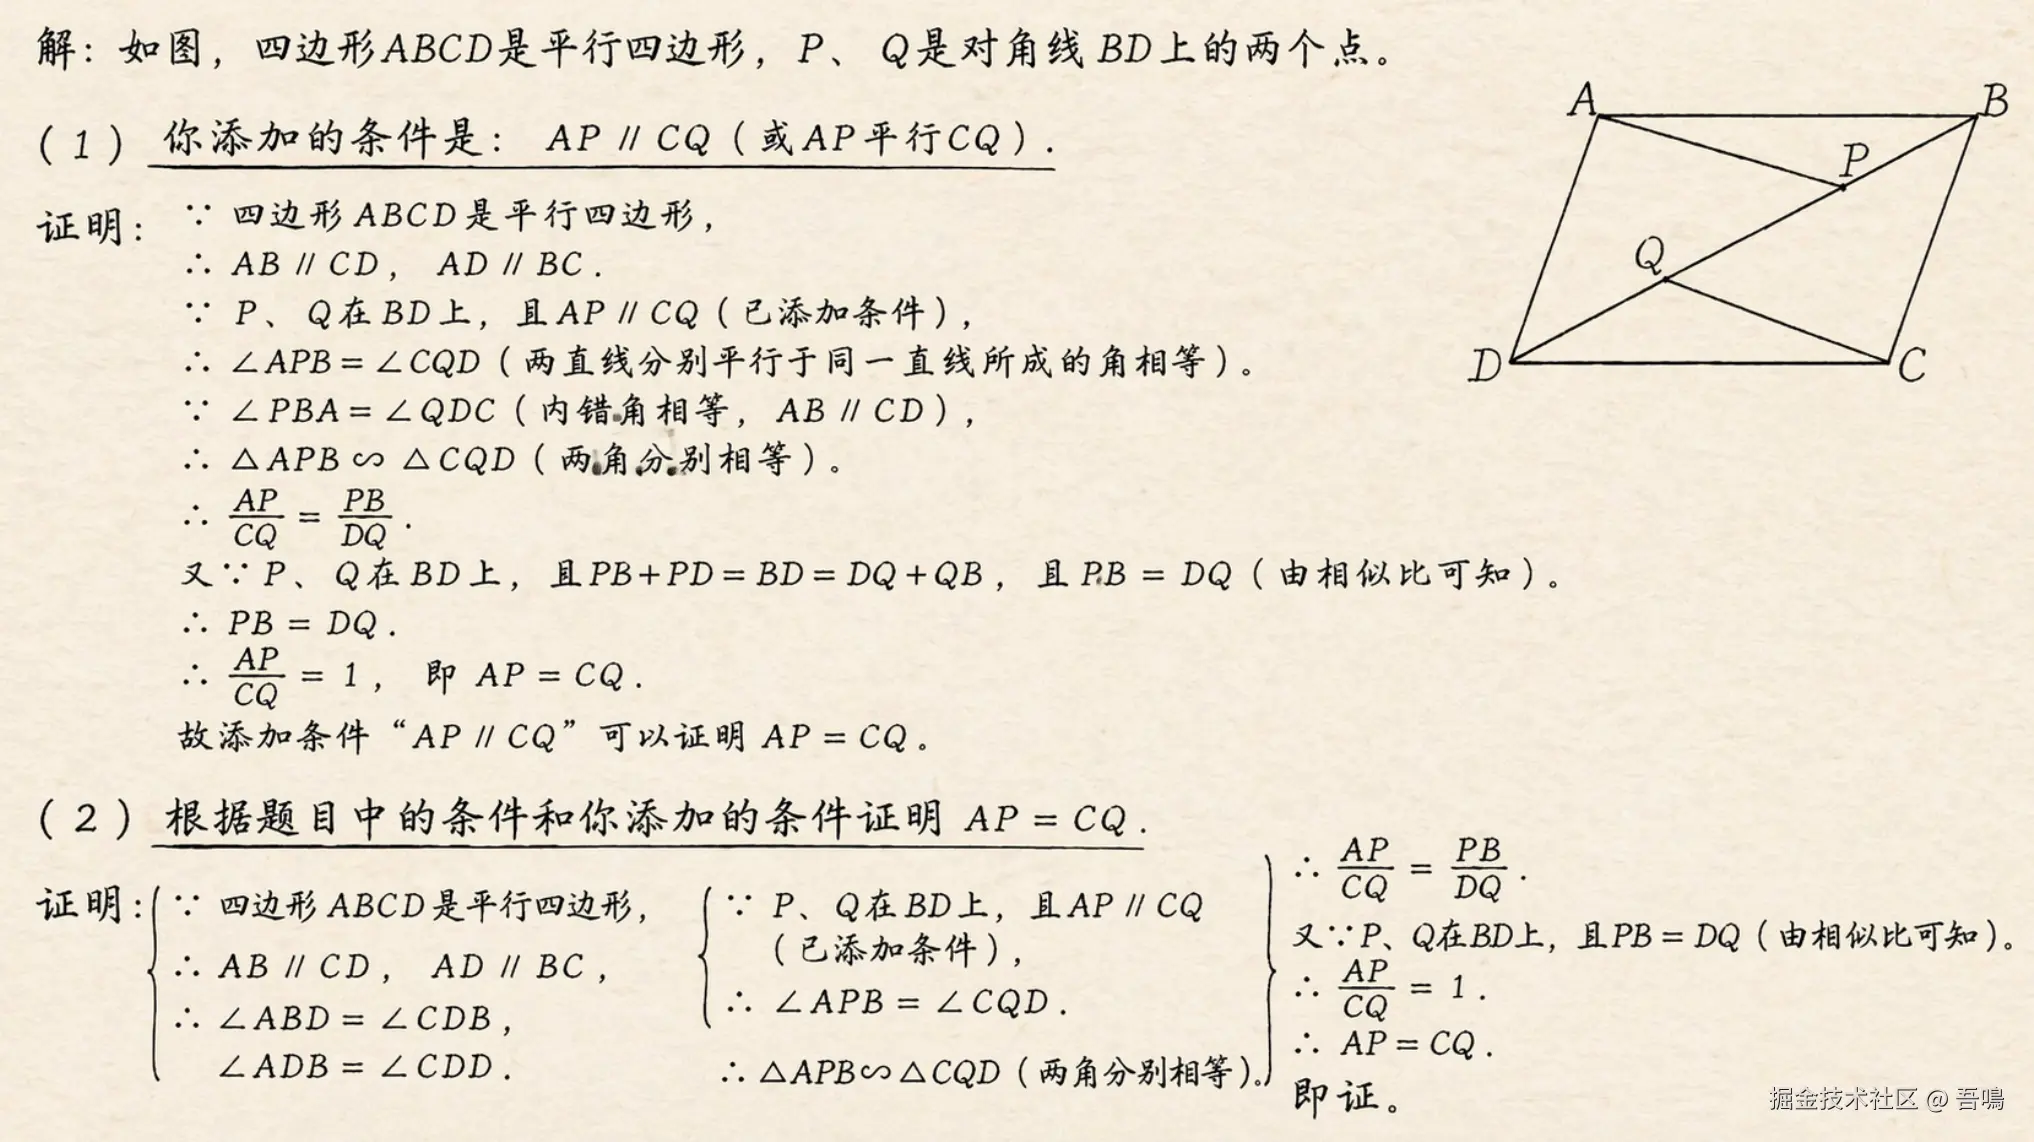 解：如图，四边形ABCD是平行四边形，P、Q是对角线BD上的两个点。
(1) 你添加的条件是： AP∥CQ（或AP平行CQ）.
证明：∵ 四边形ABCD是平行四边形，
∴ AB∥CD， AD∥BC.
∵ P、Q在BD上，且AP∥CQ（已添加条件），
∴ ∠APB=∠CQD（两直线分别平行于同一直线所成的角相等）。
∵ ∠PBA=∠QDC（内错角相等，AB∥CD），
∴ △APB∽△CQD（两角分别相等）。
∴ AP/CQ = PB/DQ.
又∵ P、Q在BD上，且PB+PD=BD=DQ+QB，且PB=DQ（由相似比可知）。
∴ PB=DQ.
∴ AP/CQ = 1，即 AP=CQ.
故添加条件“AP∥CQ”可以证明 AP=CQ。
(2) 根据题目中的条件和你添加的条件证明 AP=CQ.
证明：∵ 四边形ABCD是平行四边形，
∴ AB∥CD， AD∥BC，
∴ ∠ABD=∠CDB，
∠ADB=∠CDD.
∵ P、Q在BD上，且AP∥CQ
（已添加条件），
∴ ∠APB=∠CQD.
∴ △APB∽△CQD（两角分别相等）。
∴ AP/CQ = PB/DQ.
又∵P、Q在BD上，且PB=DQ（由相似比可知）。
∴ AP/CQ = 1.
∴ AP=CQ.
即证。
A
B
P
Q
D
C
掘金技术社区 @ 吾鳴